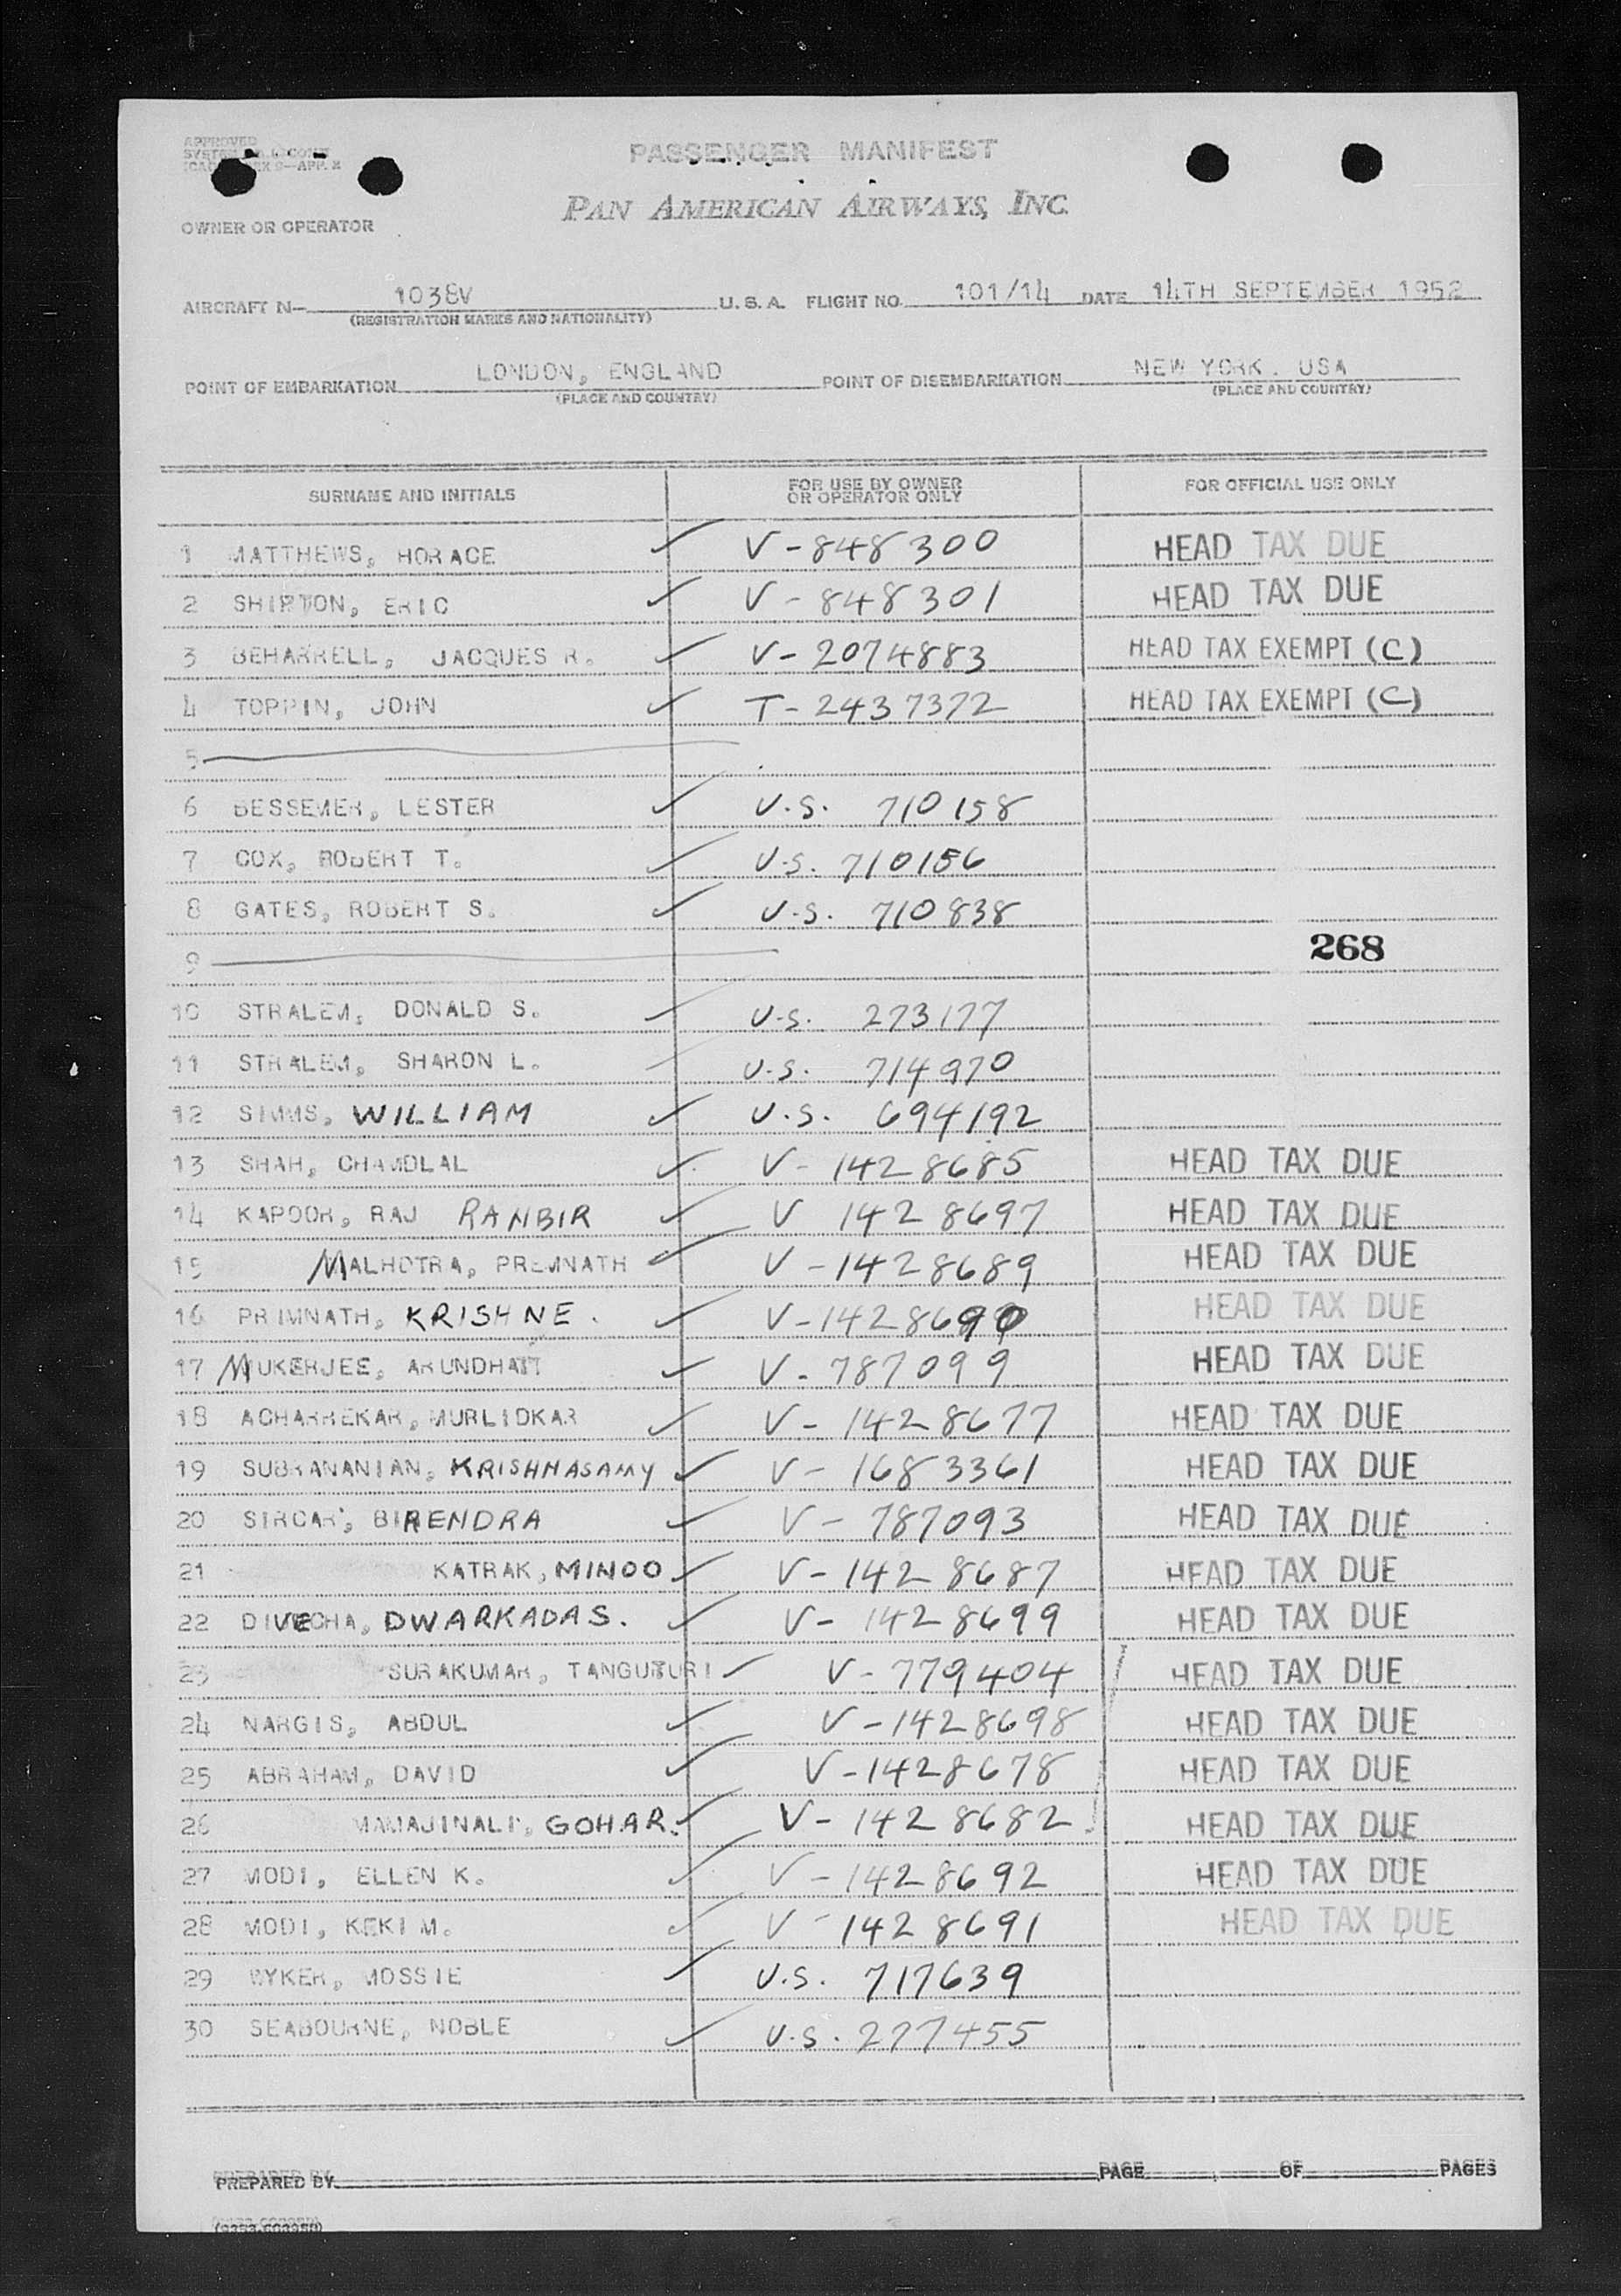 APPROVED
PASSENGER MANIFEST
PAN AMERICAN AIRWAYS, INC.
OWNER OR OPERATOR
AIRCRAFT N- 1038V U. S. A. FLIGHT NO. 101/14 DATE 14TH SEPTEMBER 1952
(REGISTRATION MARKS AND NATIONALITY)
POINT OF EMBARKATION LONDON, ENGLAND POINT OF DISEMBARKATION NEW YORK. USA
(PLACE AND COUNTRY) (PLACE AND COUNTRY)
SURNAME AND INITIALS FOR USE BY OWNER OR OPERATOR ONLY FOR OFFICIAL USE ONLY
1 MATTHEWS, HORACE V-848300 HEAD TAX DUE
2 SHIPTON, ERIC V-848301 HEAD TAX DUE
3 BEHARRELL, JACQUES R. V-2074883 HEAD TAX EXEMPT (C)
4 TOPPIN, JOHN T-2437372 HEAD TAX EXEMPT (C)
5
6 BESSEMER, LESTER U.S. 710158
7 COX, ROBERT T. U.S. 710156
8 GATES, ROBERT S. U.S. 710838
9 268
10 STRALEM, DONALD S. U.S. 273177
11 STRALEM, SHARON L. U.S. 714970
12 SIMMS, WILLIAM U.S. 694192
13 SHAH, CHAMDLAL V-1428685 HEAD TAX DUE
14 KAPOOR, RAJ RANBIR V 1428697 HEAD TAX DUE
15 MALHOTRA, PREMNATH V-1428689 HEAD TAX DUE
16 PRIMNATH, KRISHNE. V-1428690 HEAD TAX DUE
17 MUKERJEE, ARUNDHATI V-787099 HEAD TAX DUE
18 ACHARREKAR, MURLIDKAR V-1428677 HEAD TAX DUE
19 SUBRANANIAN, KRISHNASAMY V-1683361 HEAD TAX DUE
20 SIRCAR, BIRENDRA V-787093 HEAD TAX DUE
21 KATRAK, MINOO V-1428687 HEAD TAX DUE
22 DIVECHA, DWARKADAS. V-1428699 HEAD TAX DUE
23 SURAKUMAR, TANGUTURI V-779404 HEAD TAX DUE
24 NARGIS, ABDUL V-1428698 HEAD TAX DUE
25 ABRAHAM, DAVID V-1428678 HEAD TAX DUE
26 MAMAJINALI, GOHAR. V-1428682 HEAD TAX DUE
27 MODI, ELLEN K. V-1428692 HEAD TAX DUE
28 MODI, KEKI M. V-1428691 HEAD TAX DUE
29 WYKER, MOSSIE U.S. 717639
30 SEABOURNE, NOBLE U.S. 277455
PREPARED BY PAGE OF PAGES